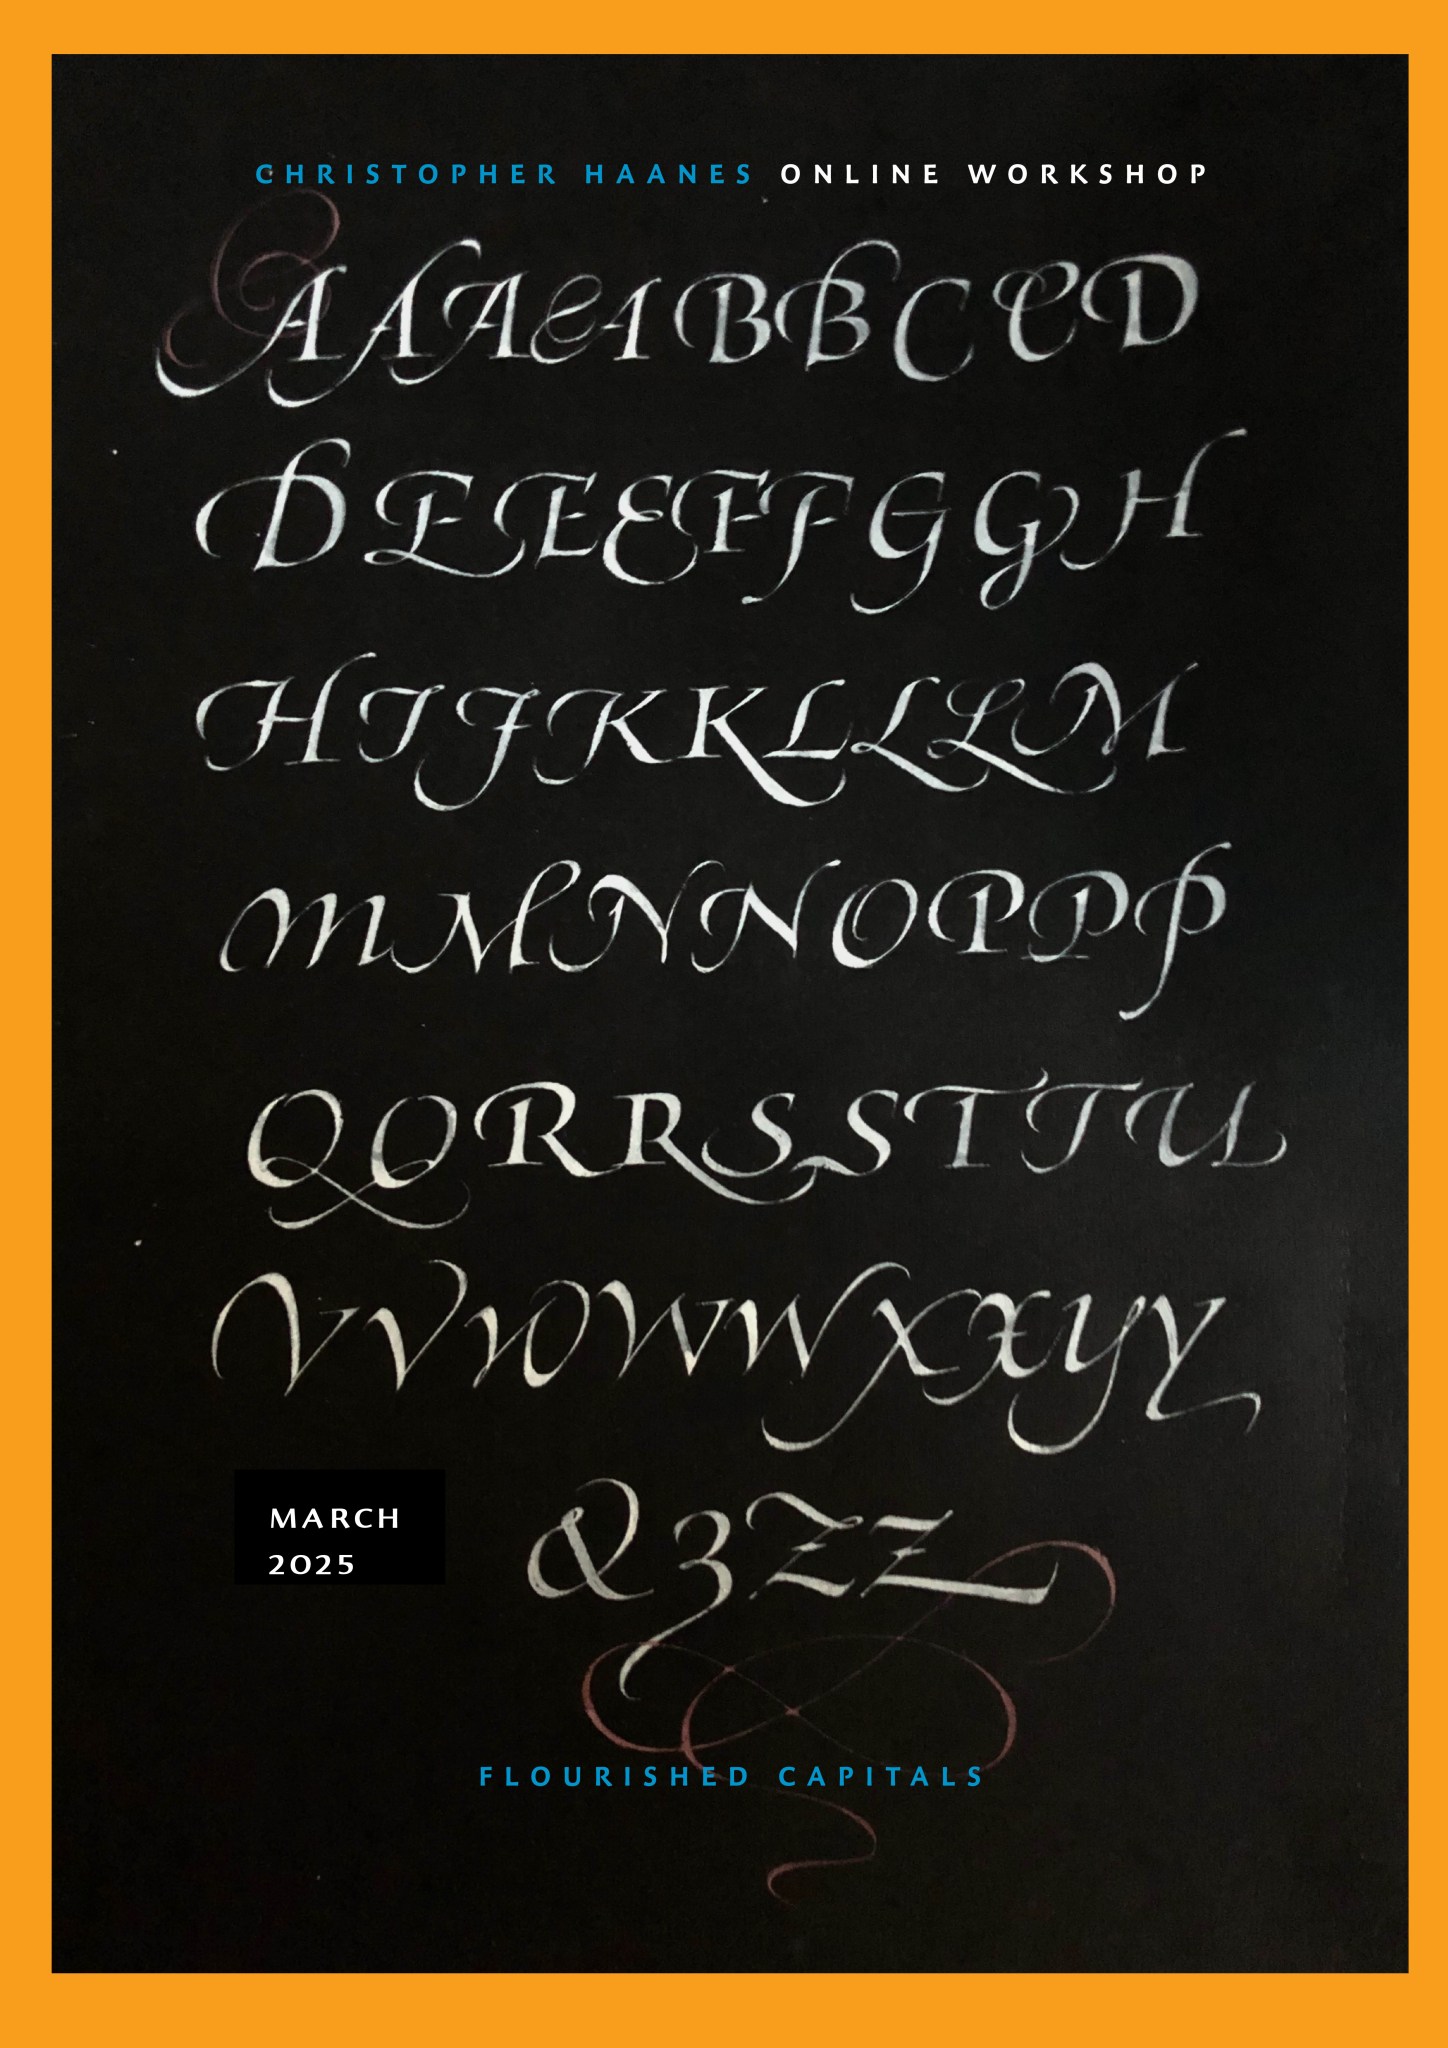 CHRISTOPHER HAANES ONLINE WORKSHOP
AAAAABBCCD
DEEEFFGGH
HIJKKLLLM
MMNNOPPP
QQRRSSTTU
VVVWWWXXYY
MARCH
2025
&ZZZ
FLOURISHED CAPITALS